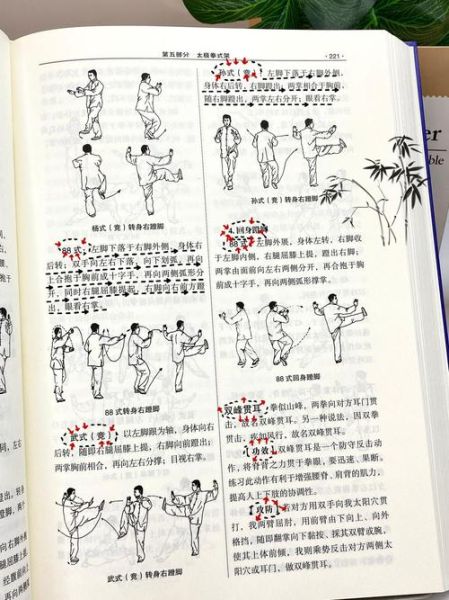 第五部分 太极拳式架
221
杨式（竞）转身右蹬脚
88式：左脚下落于右脚内侧，身体右
后转；双手向左右下落，向下划弧，再向
上抱合于胸前成十字手，再向两侧弧形分
开，同时右腿屈膝提起，右脚向右前方蹬
出，眼看右掌。
88式转身右蹬脚
武式（竞）：以左脚跟为轴，身体向右
后转，随即右腿屈膝上提，右脚向前蹬出；
两掌胸前相合，再向左右分撑；目视右掌。
武式（竞）转身右蹬脚
孙式（竞）：左脚下落于右脚外侧，
身体右后转，右脚蹬出；两掌相合于胸前，
随右脚蹬出，两掌左右分开；眼看右掌。
孙式（竞）转身右蹬脚
4.回身蹬脚
88式：左脚外展，身体左转，右脚收
于左脚内侧，右腿屈膝上提，蹬出右脚；
两掌由面前向左右两侧分开，再合抱于胸
前成十字手，再向两侧弧形撑掌。
88式回身蹬脚
双峰贯耳 拳似山峰，两拳向对方耳门贯
击，故名双峰贯耳。另一种说法，因双拳
贯击，疾如风行，故名双峰贯耳。
【功效】双峰贯耳是一个防守反击动
作，将脊背之力贯于拳眼，要迅速、果断。
练习此动作有利于增强腰脊、肩背的肌力，
提高人上下肢的协调性。
【攻防】若对方用双手向我太阳穴贯
打，我两臂屈肘，用前臂由下向上、向外
格挡，随即翻掌向下黏按、採其双臂或腕，
使其上体前倾，我则乘势反击对方两侧太
阳穴或耳门，做双峰贯耳。